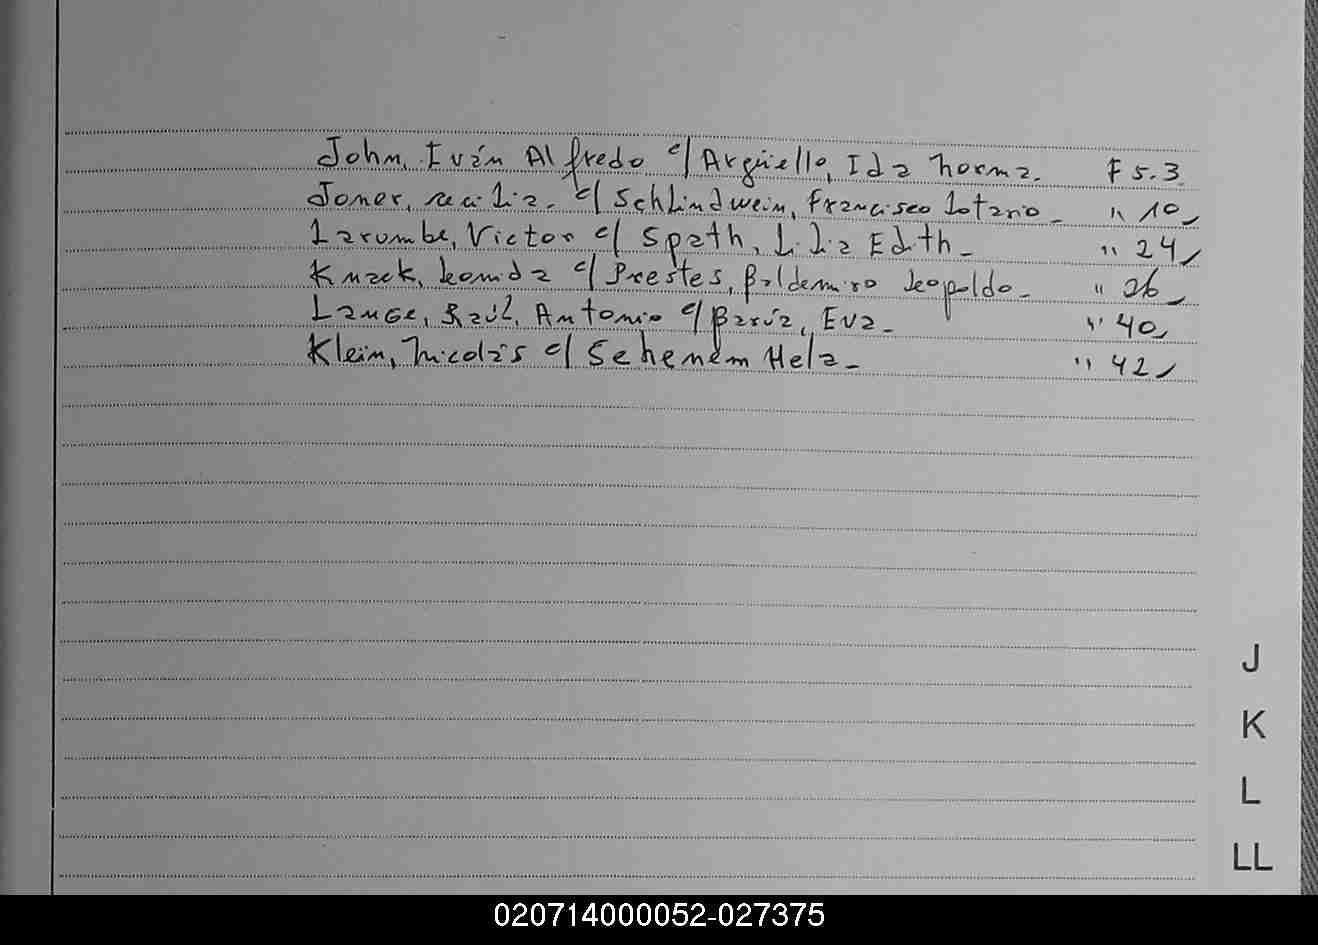 John, Iván Alfredo c/ Argüello, Ida Norma. F 5.3
Joner, c/ Schlindwein, Francisco Lotario - " 10,
Larumbe, Victor c/ Spath, Lilia Edith - " 24,
Knack, Leonida c/ Prestes, Baldemiro Leopoldo - " 26,
Lange, Raúl Antonio c/ Barúa, Eva - " 40,
Klein, Nicolás c/ Sehenem Hela - " 42,
J
K
L
LL
020714000052-027375